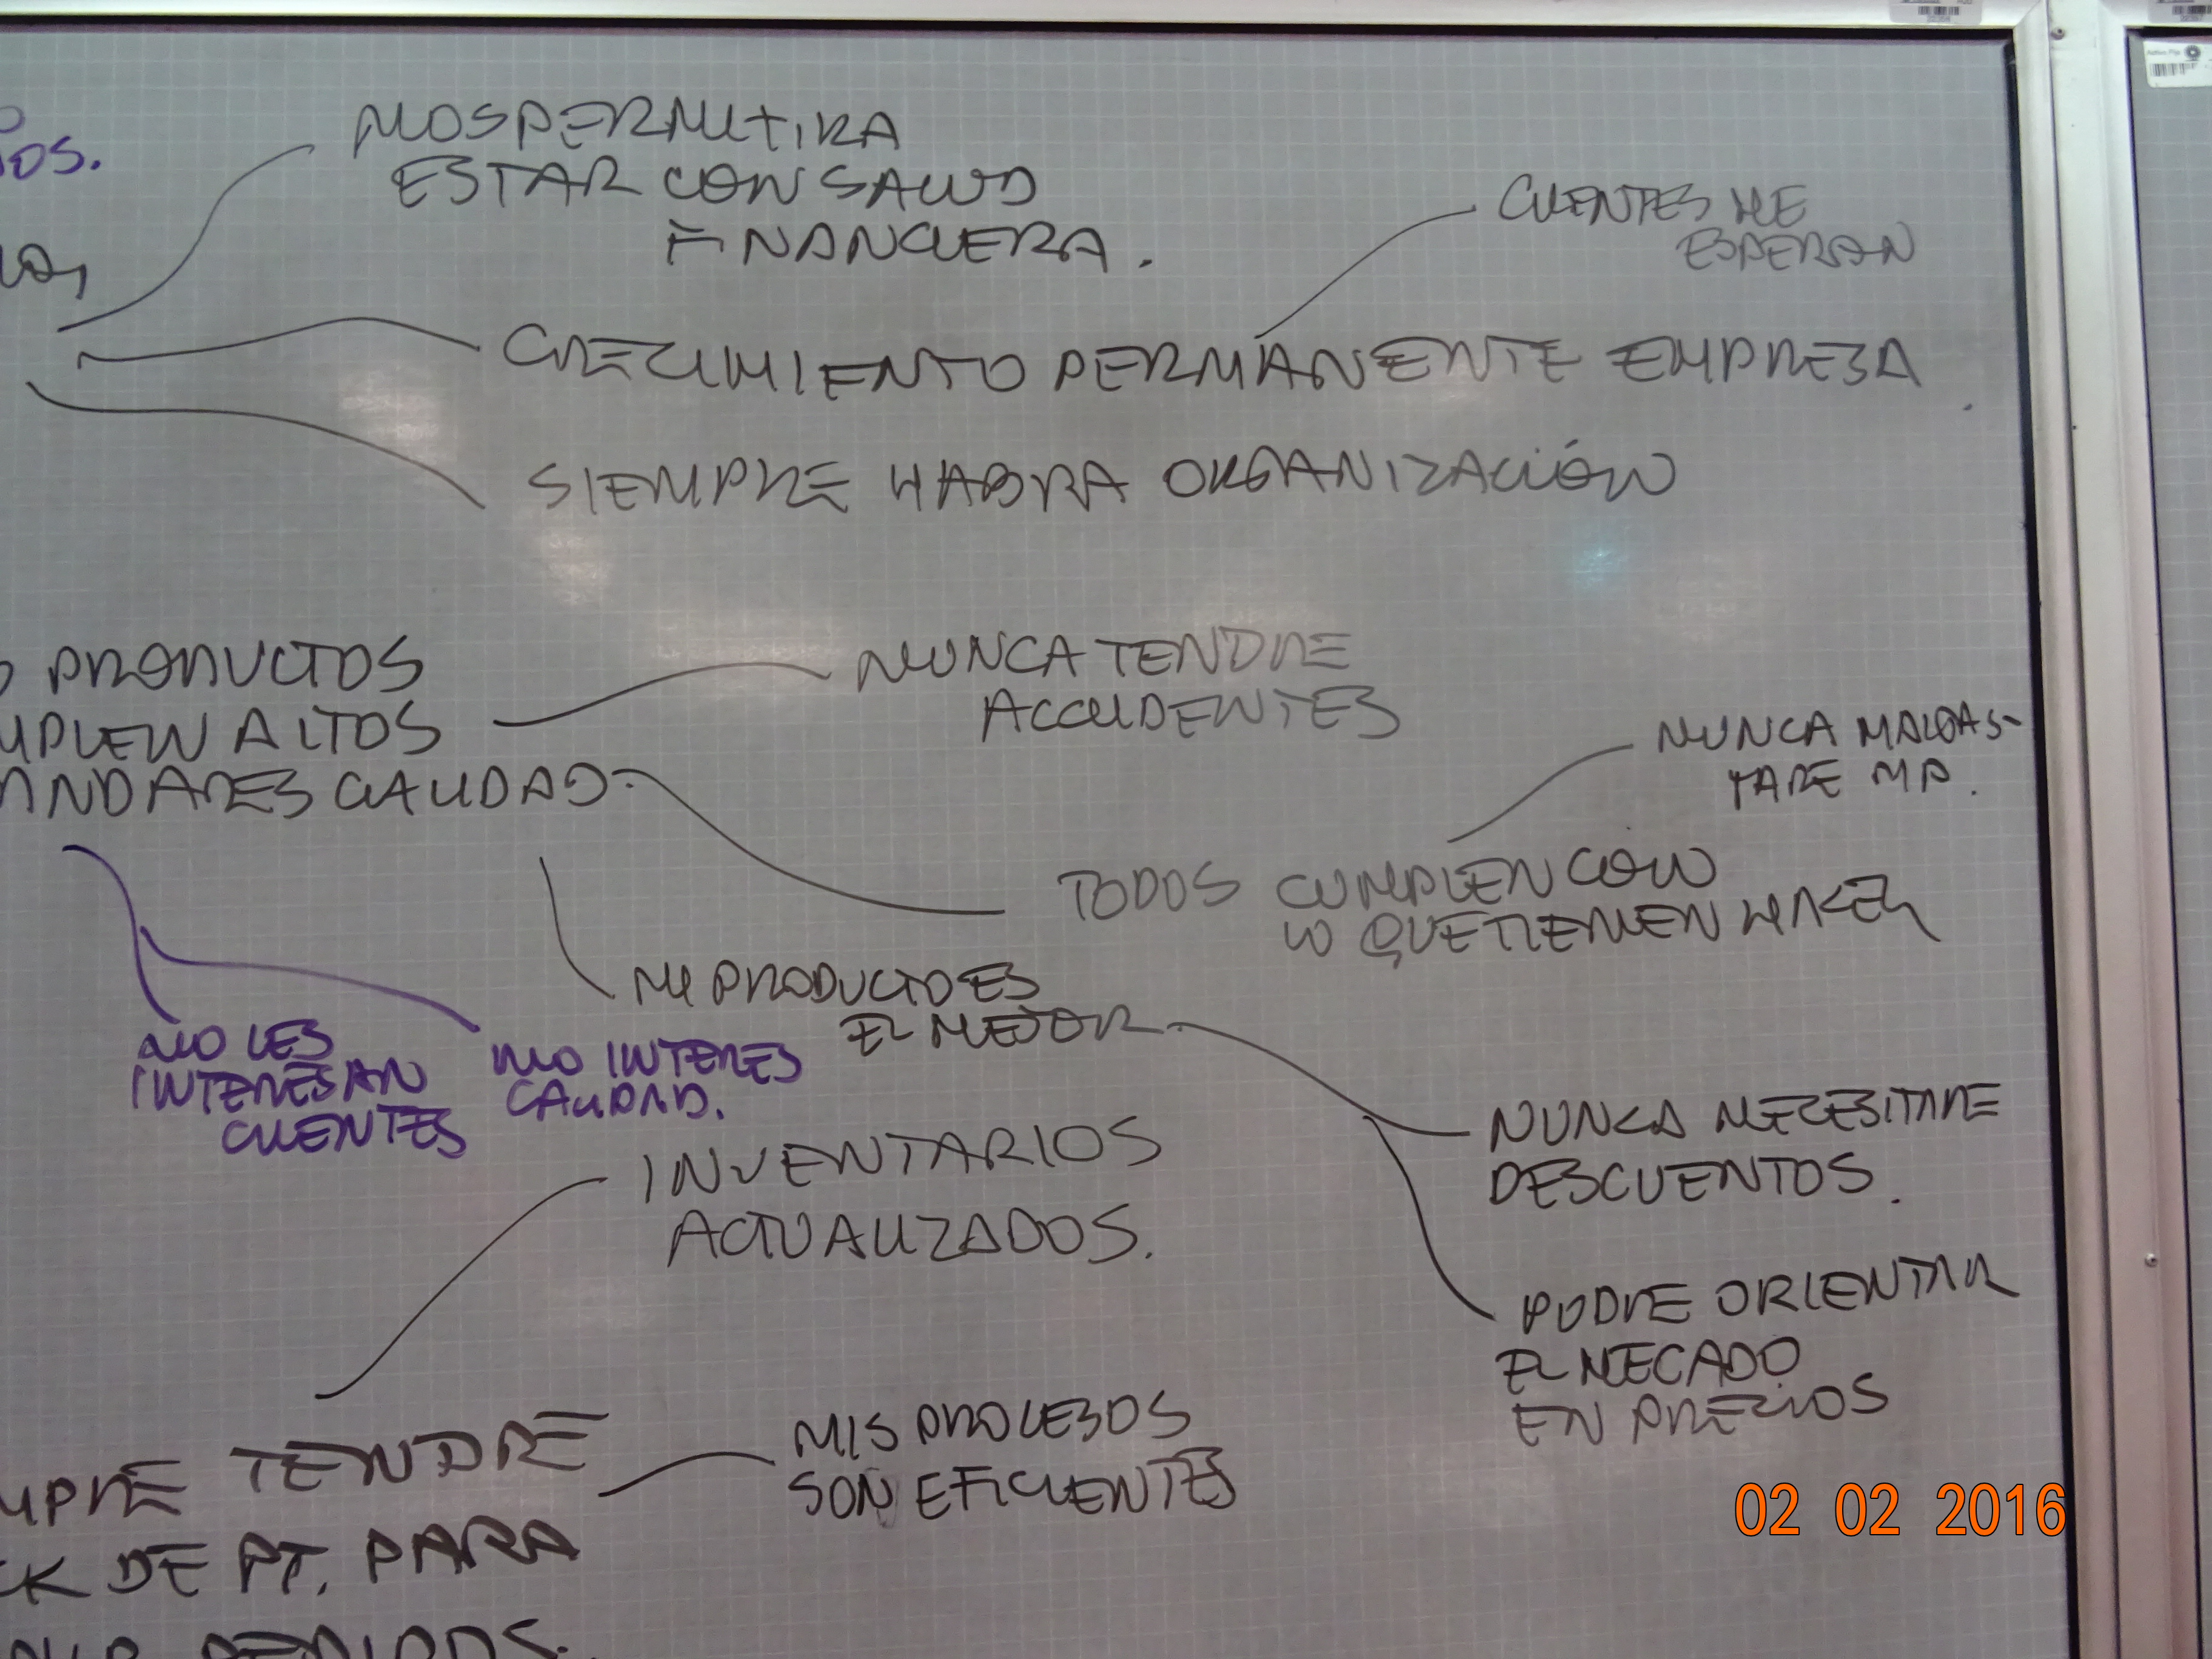 NOS PERMITIRA
ESTAR CON SALUD
FINANCIERA.
CLIENTES ME
ESPERAN
CRECIMIENTO PERMANENTE EMPRESA
SIEMPRE HABRA ORGANIZACIÓN
PRODUCTOS
ALTOS
CALIDAD
NUNCA TENDRE
ACCIDENTES
NUNCA MALGAS-
TARE MP.
TODOS CUMPLEN CON
LO QUE TIENEN HACER
MI PRODUCTO ES
EL MEJOR
NO LES
INTERESAN
CLIENTES
NO INTERES
CALIDAD.
NUNCA NECESITARE
DESCUENTOS.
INVENTARIOS
ACTUALIZADOS.
PODRE ORIENTAR
EL MECADO
EN PRECIOS
MIS PROCESOS
SON EFICIENTES
TENDRE
DE PT. PARA
PEDIDOS.
02 02 2016